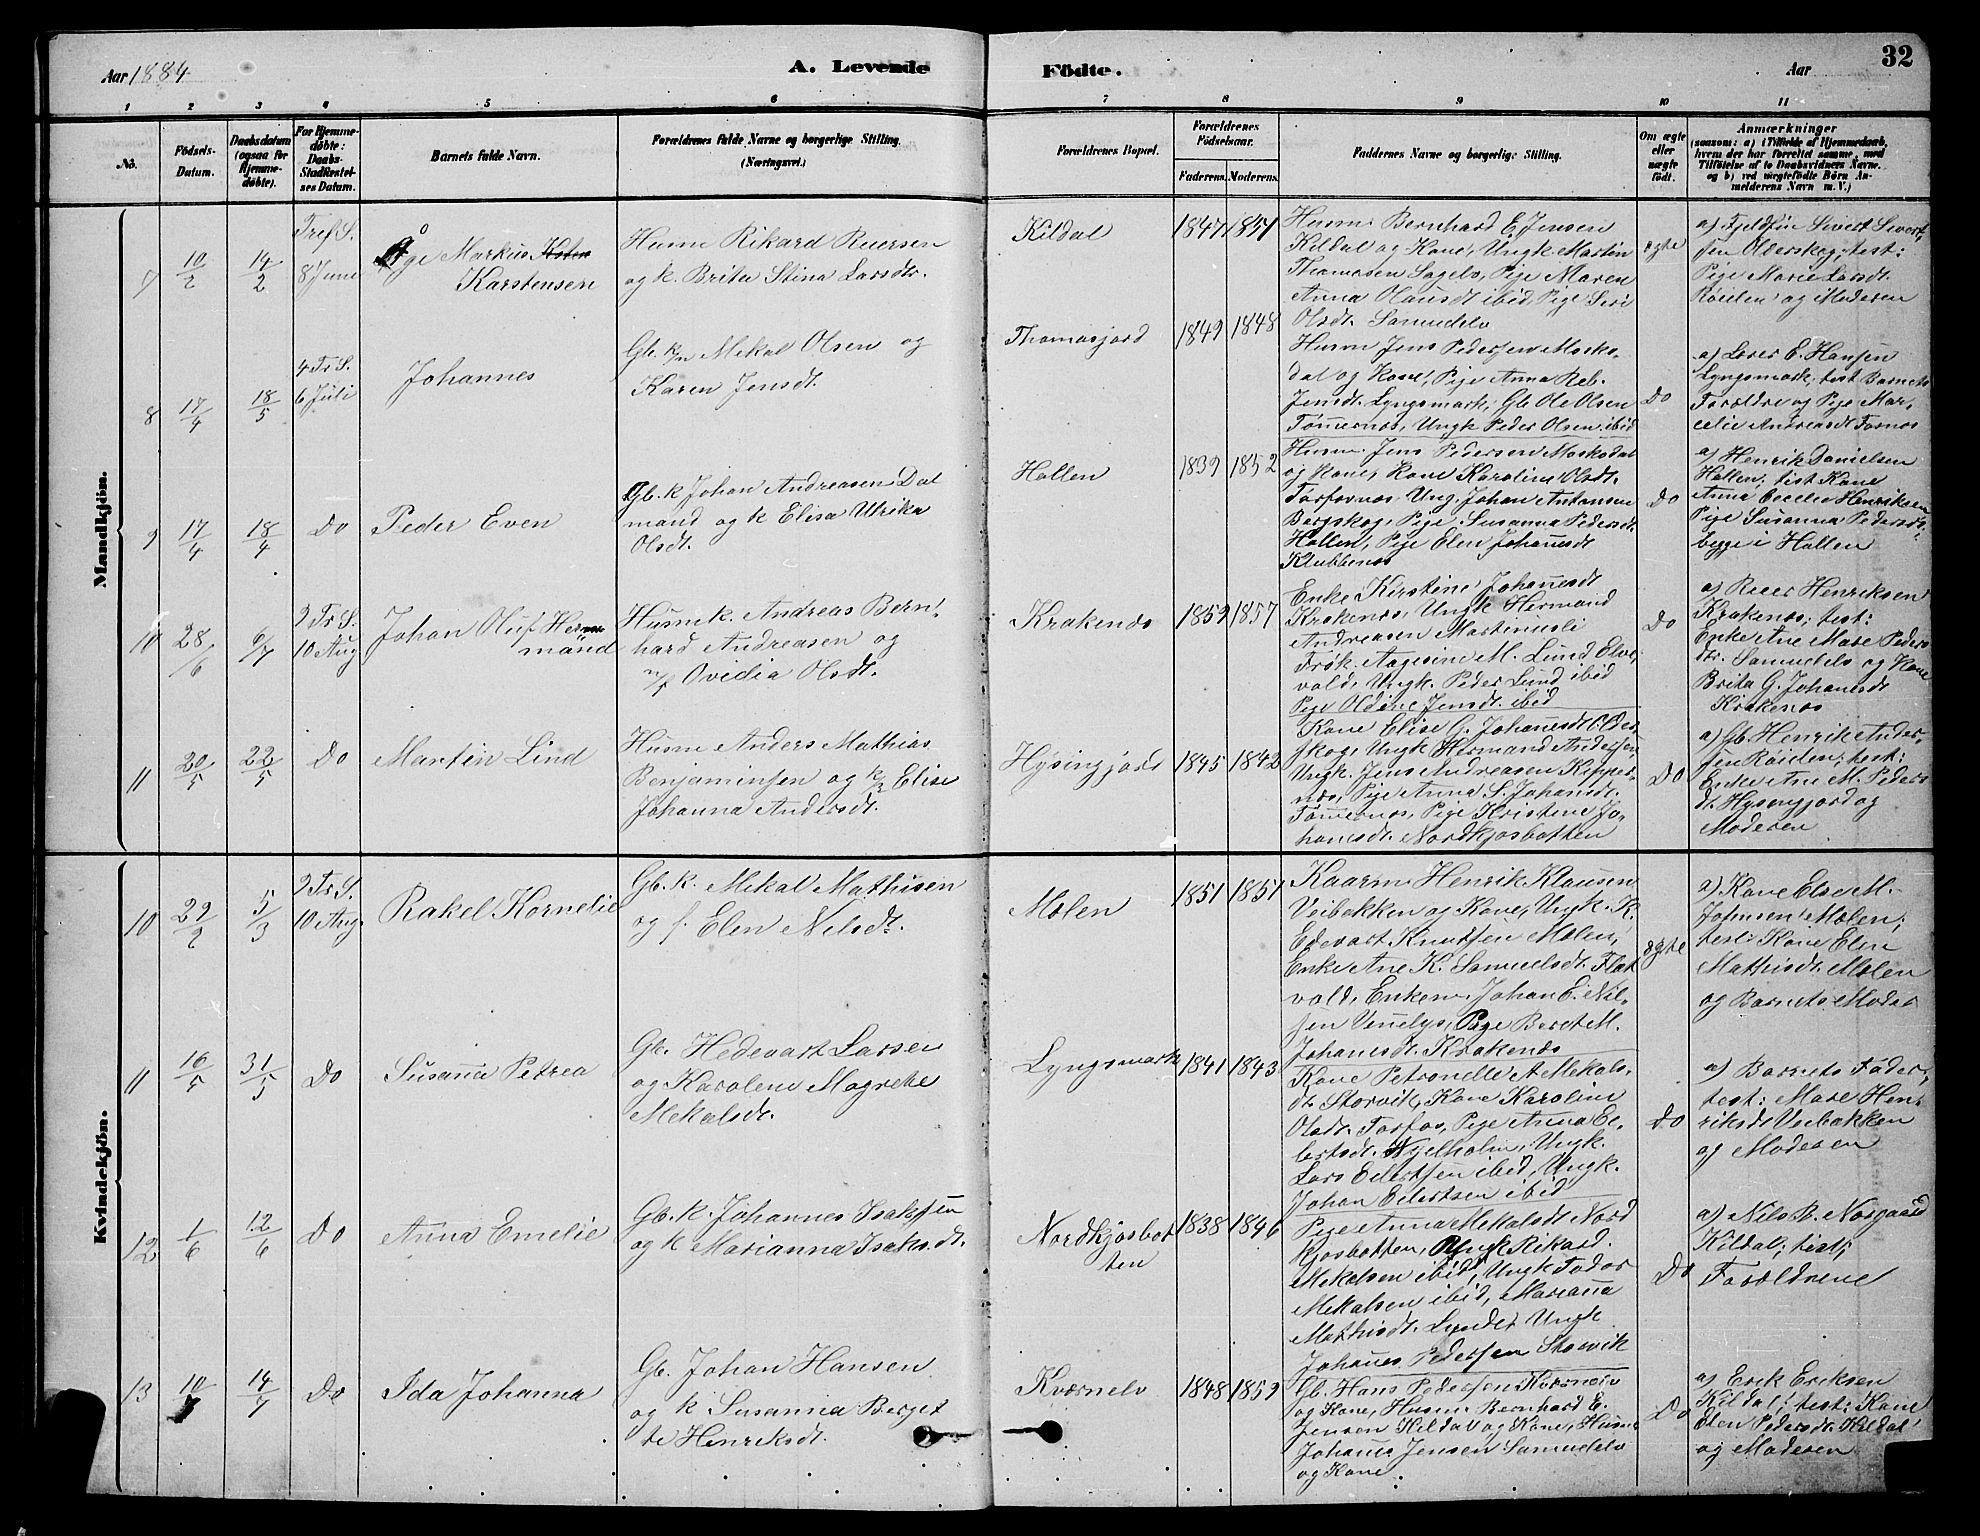 Aar 1884
A. Levende
Födte.
Aar
32
1 2 3 4 5 6 7 8 9 10 11
No.
Födsels-
Datum.
Daabsdatum
(ogsaa for
Hjemme-
döbte).
For Hjemme-
döbte:
Daabs-
Stadfæstel-
ses Datum.
Barnets fulde Navn.
Forældrenes fulde Navne og borgerlige Stilling.
(Næringsvei.)
Forældrenes Bopæl.
Forældrenes
Födselsaar.
Faderens. Moderens.
Faddernes Navne og borgerlige Stilling.
Om ægte
eller
uægte
födt.
Anmærkninger
(saasom: a) i Tilfælde af Hjemmedaab,
hvem der har forrettet samme, med
Tilföielse af to Daabsvidners Navne.
og b) ved uægtefödte Börn An-
melderens Navn m. V.)
Mandkjön.
7
10/2
14/2
Tref S.
8 Juni
Åge Markus
Karstensen
Husm Rikard Ruersen
og k. Brita Stina Larsdtr.
Kildal
1847 1851
Husm Bernhard E. Jensen
Kildal og Kone, Ungk Martin
Thomasen Sagelv, Pige Maren
Anna Olausdt ibid, Pige Siri
Olsdt. Samuelelv
ægte
a) Fjeldfin Sivert Sivert-
sen Olderskog; test:
Pige Marie Larsdt.
Röielen og Moderen
8
17/4
18/5
4 Tr S.
6 Juli
Johannes
Gb. k/n Mekal Olsen og
Karen Jensdt.
Thomasjord
1849 1848
Husm Jens Pedersen Mosko-
dal og Kone, Pige Anna Reb.
Jensdt. Lyngsmark, Gb. Ole Olsen
Tömernes, Ungk Peder Olsen ibid
Do
a) Lærer E. Hansen
Lyngsmark; test Barnets
Forældre og Pige Mar-
celie Andreasdt Fornes
9
17/4
18/4
Do
Peder Even
Gb. k Johan Andreasen Dal
mand og k Elisa Ulrika
Olsdt.
Hollen
1839 1852
Husm. Jens Pedersen Moskodal
og Kone, Kone Karoline Olsdt.
Forfornes Ung. Johan Antonsen
Bergskog, Pige Susanna Pedersdt.
Hollen, Pige Elen Johannesdt
Klubbenes
Do
a) Henrik Danielsen
Hollen; test Kone
Anna Cecelie Henriksen
Pige Susanna Pedersdt.
begge i Hollen
10
28/6
6/7
9 Tr S.
10 Aug
Johan Oluf Her-
mand
Husm k. Andreas Bern-
hard Andreasen og
n/f Ovidia Olsdt.
Krakenes
1859 1857
Enke Kirstine Johannesdt
Krakenes, Ungk Hermand
Andreasen Martinusli
Frök. Aagesine M. Lund Elve-
vold, Ungk. Peder Lund ibid
Pige Oldine Jensdt. ibid
Do
a) Reier Henriksen
Krakenes; test:
Enke Ane Mare Peders
dtr. Samuelelv og Kone
Brita G. Johanesdt
Krakenes
11
20/5
22/5
Do
Martin Lind
Husm Anders Mathias
Benjaminsen og k/n Elise
Johanna Andersdt.
Hysingjord
1845 1842
Kone Elise G. Johanesdt Older-
skog, Ungk Hermand Andersen
Ungk. Jens Andreasen Kipper-
nes, Pige Anna S. Johansdt.
Tömernes, Pige Kristine Jo-
hansdt. Nordkjosbotten
Do
a) Gb. Henrik Ander-
sen Röielen; test:
Enke Ane M. Peders
dt. Hysengjord og
Moderen
Kvindekjön.
10
29/2
5/3
9 Tr S.
10 Aug.
Rakel Kornelie
Gb. k. Mekal Mathisen
og f. Elen Nilsdt.
Molen
1851 1851
Kaarm Henrik Klausen
Veibakken og Kone, Ungk. K.
Edevart Knutsen Molen,
Enke Ane K. Samuelsdt. Flat
vold, Enkem. Johan E. Nil-
sen Venelys, Pige Berct M.
Johanesdt. Krakenes
ægte
a) Kone Else M.
Johnsen Molen;
test: Kone Elen
Mathisdt. Molen
og Barnets Moder
11
16/5
31/5
Do
Susana Petrea
Gb. Hedevart Larsen
og Karolene Magrete
Mekalsdt.
Lyngsmark
1841 1843
Kone Petronelle A Mekals-
dt. Storvik, Kone Karoline
Olsdt. Forfos, Pige Anna Ei-
lertsdt. Kjelholm, Ungk.
Lars Eilertsen ibid, Ungk.
Johan Eilertsen ibid
Do
a) Barnets Fader;
test: Mare Hen-
riksdt Veibakken
og Moderen
12
1/6
12/6
Do
Anna Emelie
Gb. k. Johannes Isaksen
og k Marianna Isaksdt.
Nordkjosbot
ten
1838 1846
Pige Anna Mekalsdt Nord
kjosbotten, Ungk Rikard
Mekelsen ibid, Ungk Fodor
Mekalsen ibid, Mariana
Mathisdt. Lyndet Ungk
Johanes Pedersen Storvik
Do
a) Nils B. Norgaard
Kildal; test;
Forældrene
13
10/7
14/7
Do
Ida Johanna
Gb. Johan Hansen
og k Susanna Berget
te Henriksdt.
Kværnelv
1848 1859
Gb. Hans Pedersen Kværnelv
og Kone, Husm Bernhard E.
Jensen Kildal og Kone, Husm
Johanes Jensen Samuelelv
og Kone.
Do
a) Erik Eriksen
Kildal; test: Kone
Elen Pedersdt. Kildal
og Moderen